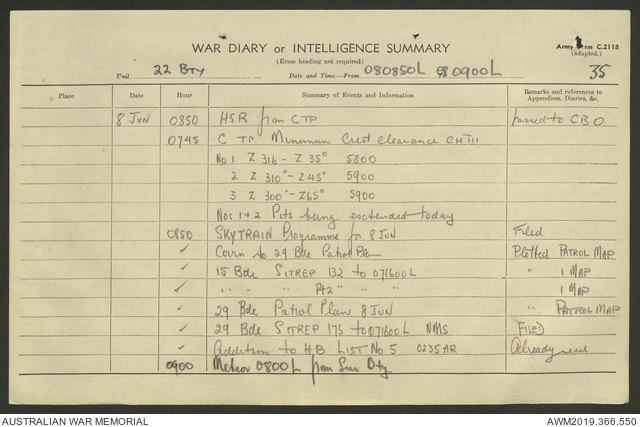 WAR DIARY or INTELLIGENCE SUMMARY
(Erase heading not required)
Army Form C.2118
(adapted.)
Unit 22 Bty Date and Time.—From 080850L 0900L 35
Place Date Hour Summary of Events and Information Remarks and references to Appendices, Diaries, &c.
8 JUN 0850 HSR from CTP passed to CBO
0745 C TP Minimum Crest Clearance CH III
No 1 Z 316 - Z 35° 5800
2 Z 310° - Z 45° 5900
3 Z 300° - Z 65° 5900
Nos 1+2 Pits being extended today
0850 SKYTRAIN Programme for 8 JUN Filed
✓ Corrn to 29 Bde Patrol Plan Plotted PATROL MAP
✓ 15 Bde SITREP 132 to 071600L " 1 MAP
✓ " " " Pt 2 " " " 1 MAP
✓ 29 Bde Patrol Plan 8 JUN " PATROL MAP
✓ 29 Bde SITREP 175 to 071600L NMS FILED
✓ Addition to HB LIST No 5. 0235AR Already recd
0900 Meteor 0800L from Svy Bty.
AUSTRALIAN WAR MEMORIAL
AWM2019.366.550